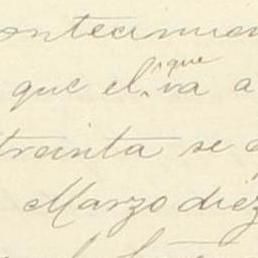 ontecimien
que el que va a
treinta se
Marzo diez